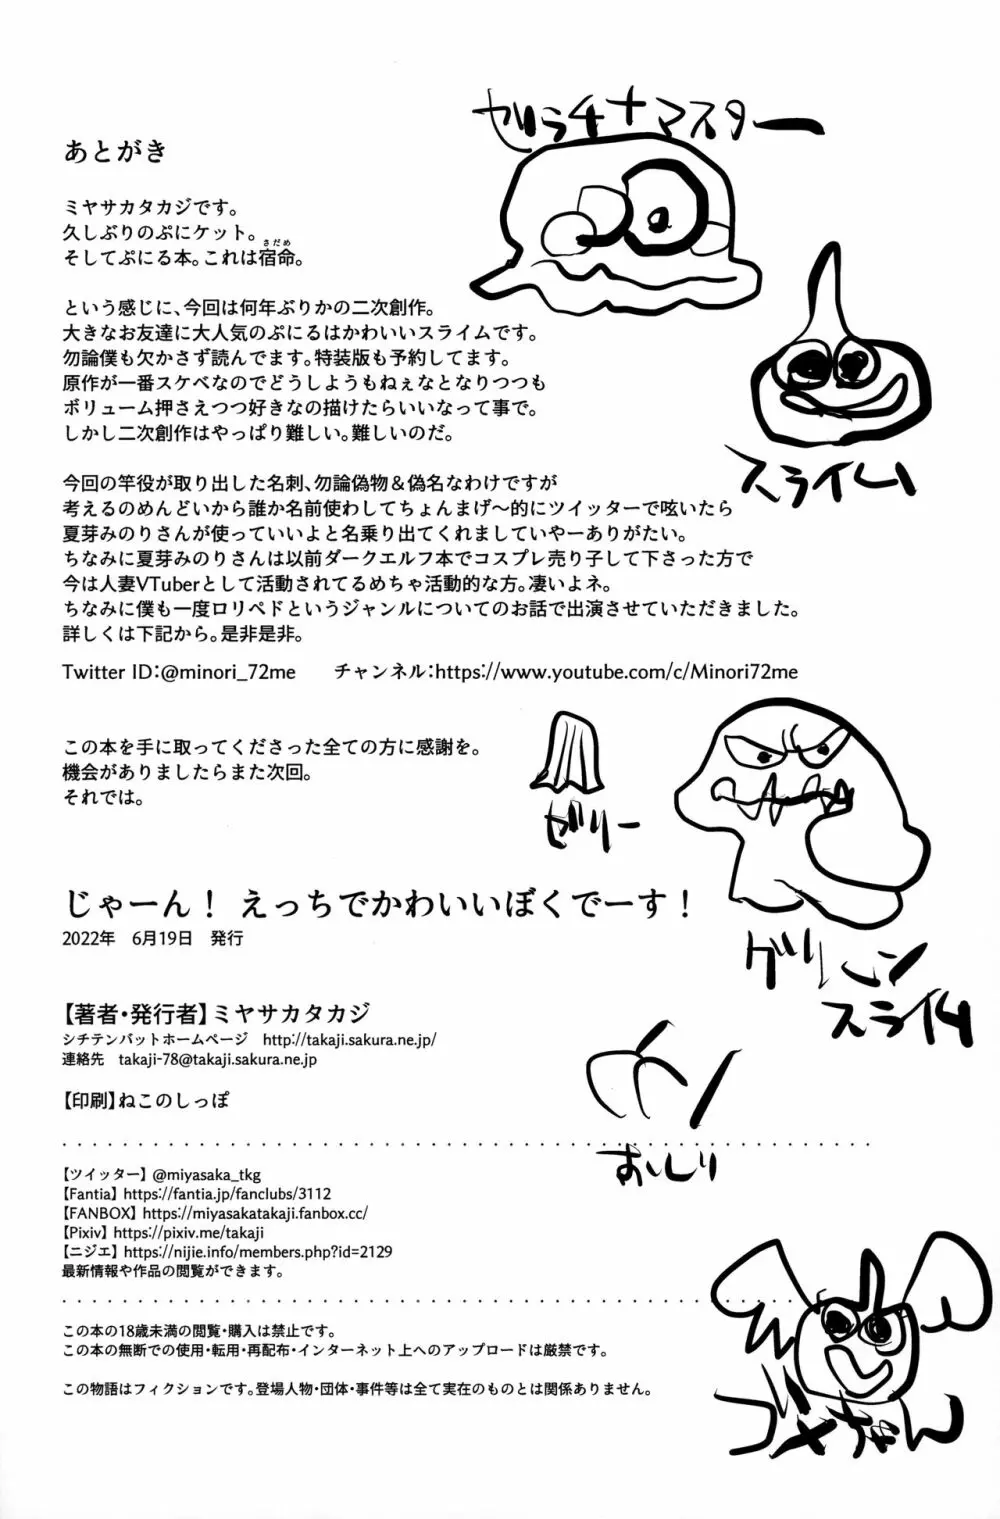 あとがき
ミヤサカタカジです。
久しぶりのぷにケット。
さだめ
そしてぷにる本。これは宿命。
という感じに、今回は何年ぶりかの二次創作。
大きなお友達に大人気のぷにるはかわいいスライムです。
勿論僕も欠かさず読んでます。特装版も予約してます。
原作が一番スケベなのでどうしようもねぇなとなりつつも
ボリューム押さえつつ好きなの描けたらいいなって事で。
しかし二次創作はやっぱり難しい。難しいのだ。
今回の竿役が取り出した名刺、勿論偽物＆偽名なわけですが
考えるのめんどいから誰か名前使わしてちょんまげ〜的にツイッターで呟いたら
夏芽みのりさんが使っていいよと名乗り出てくれましていやーありがたい。
ちなみに夏芽みのりさんは以前ダークエルフ本でコスプレ売り子して下さった方で
今は人妻VTuberとして活動されてるめちゃ活動的な方。凄いよネ。
ちなみに僕も一度ロリペドというジャンルについてのお話で出演させていただきました。
詳しくは下記から。是非是非。
Twitter ID：@minori_72me　　チャンネル：https://www.youtube.com/c/Minori72me
この本を手に取ってくださった全ての方に感謝を。
機会がありましたらまた次回。
それでは。
じゃーん！ えっちでかわいいぼくでーす！
2022年　6月19日　発行
【著者・発行者】ミヤサカタカジ
シチテンバットホームページ　http://takaji.sakura.ne.jp/
連絡先　takaji-78@takaji.sakura.ne.jp
【印刷】ねこのしっぽ
【ツイッター】@miyasaka_tkg
【Fantia】https://fantia.jp/fanclubs/3112
【FANBOX】https://miyasakatakaji.fanbox.cc/
【Pixiv】https://pixiv.me/takaji
【ニジエ】https://nijie.info/members.php?id=2129
最新情報や作品の閲覧ができます。
この本の18歳未満の閲覧・購入は禁止です。
この本の無断での使用・転用・再配布・インターネット上へのアップロードは厳禁です。
この物語はフィクションです。登場人物・団体・事件等は全て実在のものとは関係ありません。
ゼラチナマスター
スライム
ゼリー
グリーン
スライム
おいしい
ゴメちゃん